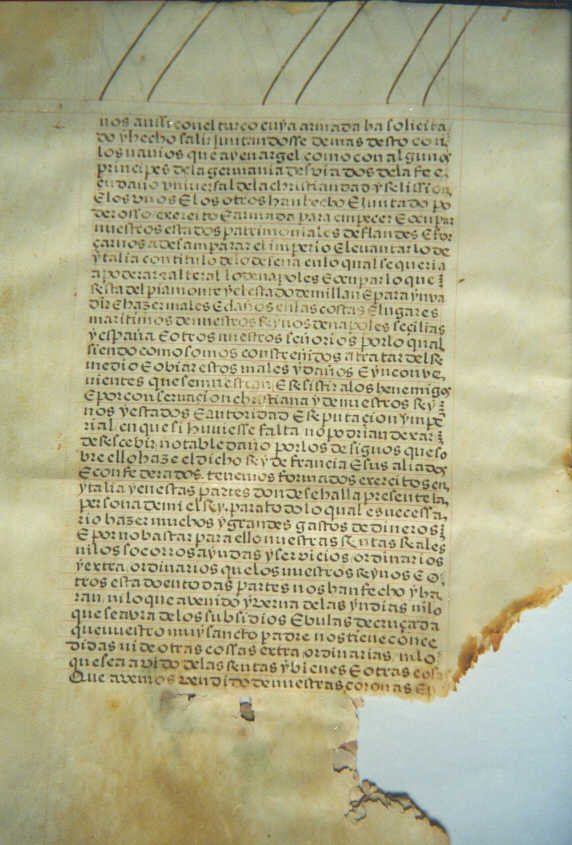 nos anssi con el turco cuya armada ha solicita
do y hecho salir juntandosse demas desto con
los navios que ay en argel como con algunos
principes de la germania desviados de la fe e
en daño universal de la christiandad y
E los unos E los otros han hecho E juntado po
derosso exercito E armada para empecer E ocupar
nuestros estados patrimoniales de flandes E for
çarnos a desamparar el imperio E levantar lo de
ytalia con titulo de lo de sena en lo qual se queria
apoderar E alterar lo de napoles E ocupar lo que
resta del piamonte y el estado de millan E para ynva
dir E hazer males E daños en las costas E lugares
maritimos de nuestros Reynos de napoles secilias
y españa E otros nuestros señorios por lo qual
siendo como somos constreñidos a tratar del Re
medio E obiar estos males y daños E ynconve
nientes que se muestran E Resistir a los henemigos
E por conservacion christiana y de nuestros Rey
nos y estados E autoridad E Reputacion ympe
rial en que si huviesse falta no podrian dexar
de Rescebir notable daño por los designos que so
bre ello haze el dicho Rey de francia E sus aliados
E confederados. tenemos formados exercitos en
ytalia y en estas partes donde se halla presente la
persona de mi el Rey. para todo lo qual es necessa
rio hazer muchos y grandes gastos de dineros
E por no bastar para ello nuestras Rentas Reales
ni los socorros ayudas y servicios ordinarios
y extra ordinarios que los nuestros Reynos E o
tros estados en todas partes nos han fecho y ha
ran. ni lo que a venido y verna de las yndias ni lo
que se avra de los subsidios E bulas de cruçada
que nuestro muy sancto padre nos tiene conce
didas ni de otras cossas extra ordinarias. ni lo
que se a avido de las Rentas y bienes E otras cosas
Que avemos vendido de nuestras coronas E